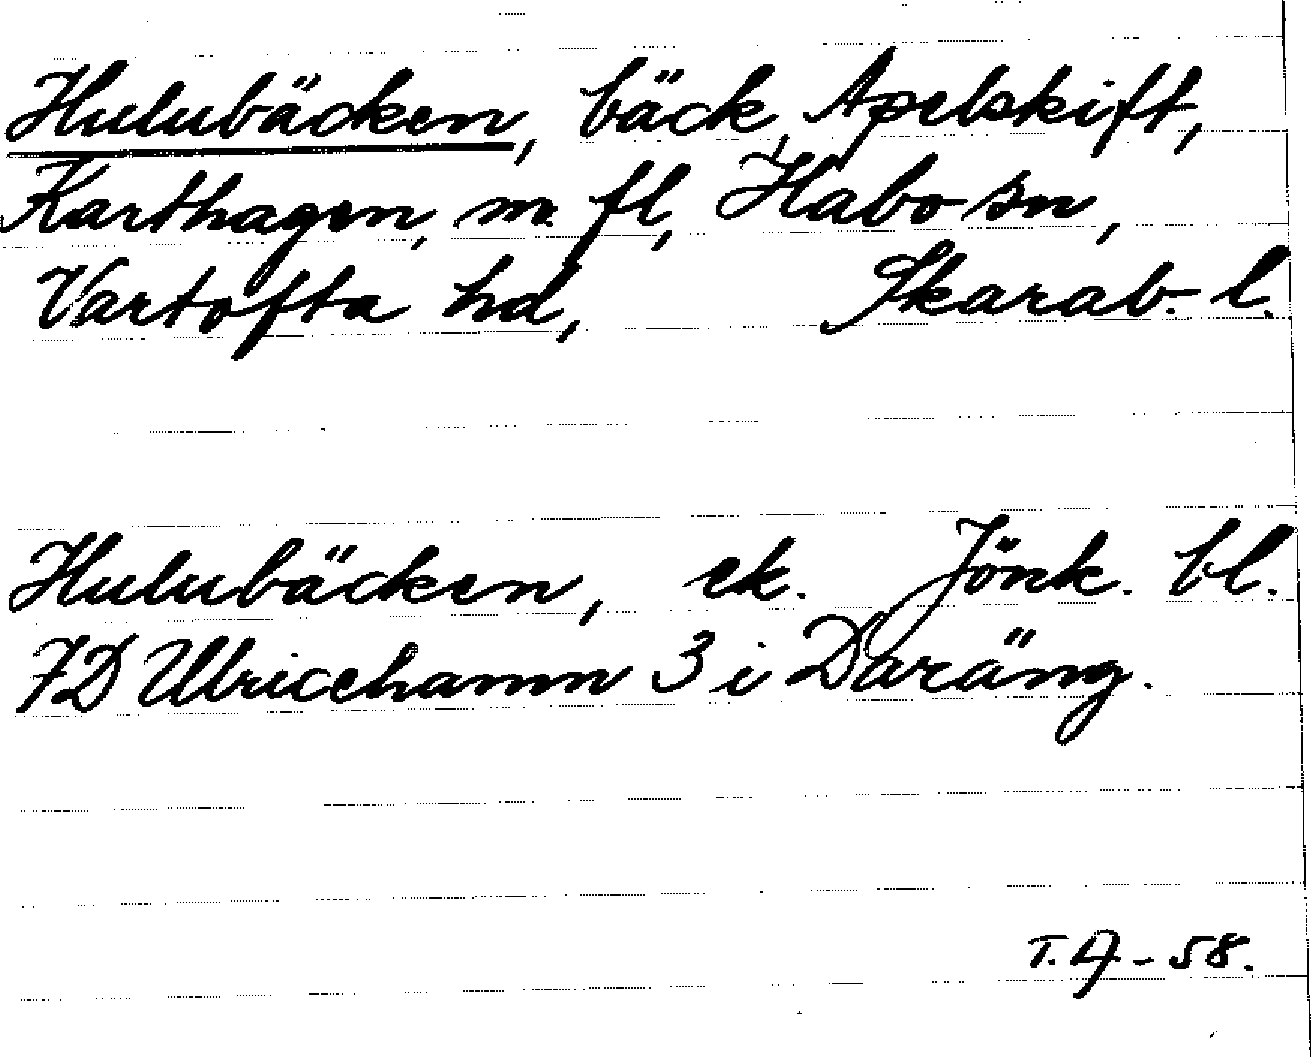 Hulubäcken, bäck, Apelskift,
Karthagen, m. fl, i Habo sn,
Vartofta hd, Skarab. l.
Hulubäcken, ek. Jönk. bl.
7D Ulricehamn 3 i Daräng.
T. A - 58.